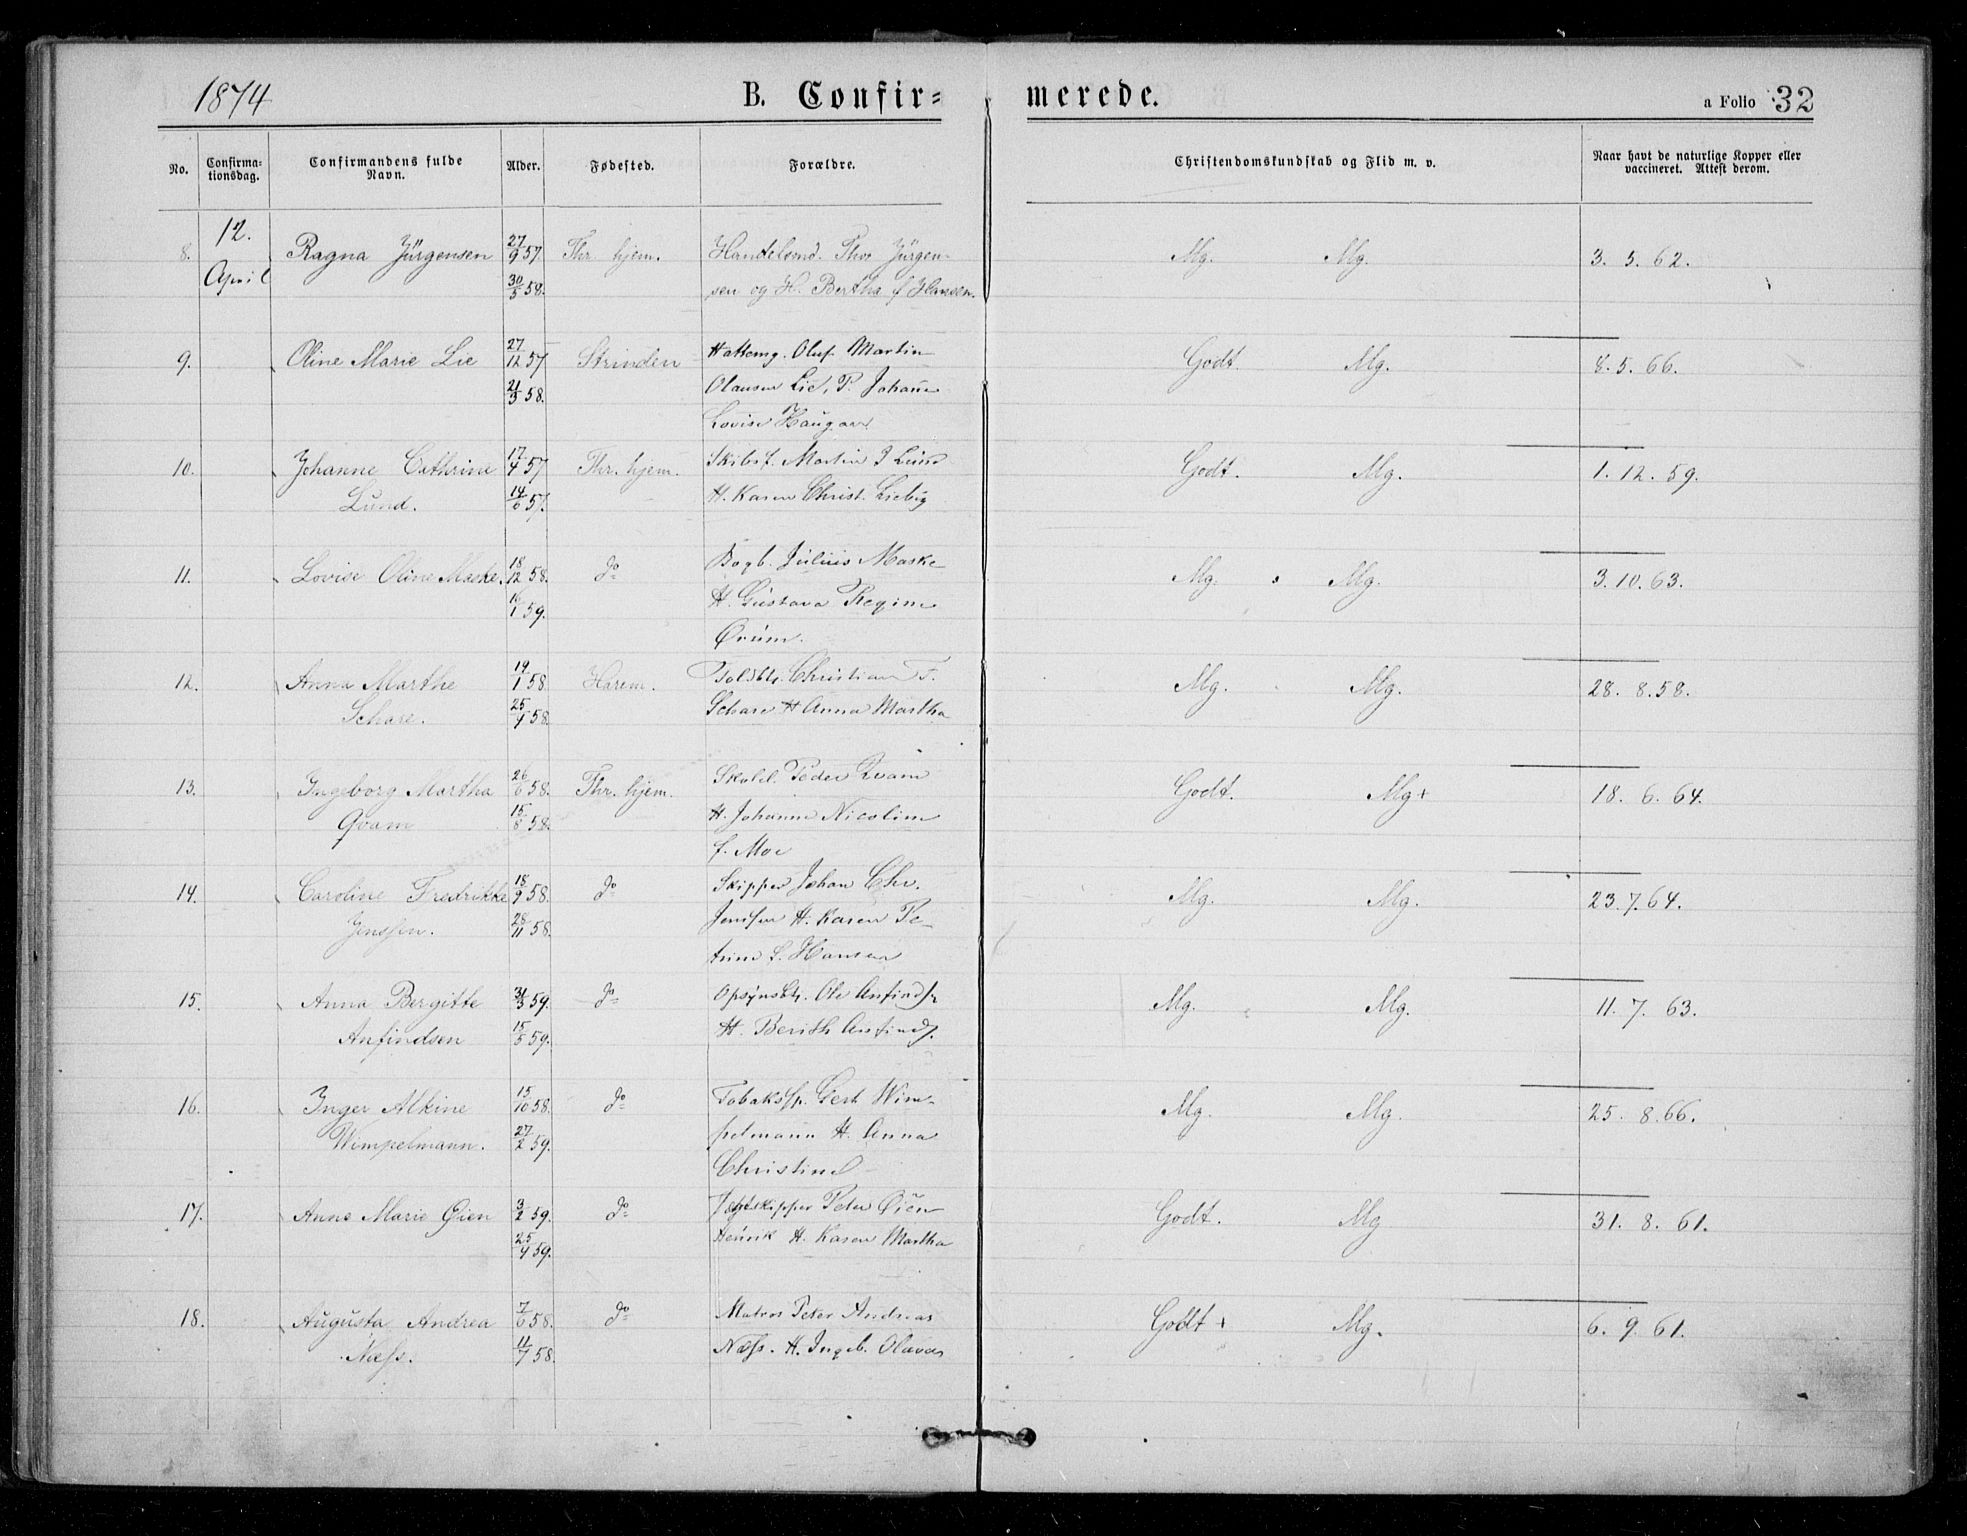 1874 B. Confir= merede. a Folio 32
No. Confirma-tionsdag. Confirmandens fulde Navn. Alder. Fødested. Forældre. Christendomskundskab og Flid m. v. Naar havt de naturlige Kopper eller vaccineret. Attest derom.
12.
8. April Ragna Jürgensen 27/9 57. Thr. hjem. Handelsmd. Thos Jürgen- Mg. Mg. 3. 5. 62.
30/5 58. sen og H. Bertha f Hansen.
9. Oline Marie Lie 27/12 57 Strinden Hattemg. Oluf Martin Godt. Mg. 8. 5. 66.
21/3 58. Olausen Lie, P. Johane
Lovise Haugan
10. Johanne Cathrine 17/4 57 Thr. hjem. Skibsf. Martin J Lund Godt. Mg. 1. 12. 59.
Lund. 14/6 57. H. Karen Christ. Liebig
11. Lovise Oline Maske. 18/12 58. do Bogb. Julius Maske Mg. Mg. 3. 10. 63.
16/1 59. H. Gustava Regine
Ørum.
12. Anna Marthe 19/1 58. Harem. Toldbtj. Christian F. Mg. Mg. 28. 8. 58.
Schare. 25/4 58. Schare H Anna Martha
13. Ingeborg Martha 26/6 58. Thr. hjem. Skolel. Peder Kvam Godt. Mg+ 18. 6. 64.
Qvam 15/8 58. H. Johanne Nicoline
f. Moe
14. Caroline Fredrikke 18/9 58. do Skipper Johan Chr. Mg. Mg. 23. 7. 64.
Jenssen. 28/11 58. Jenssen H. Karen Pe-
trine f. Hansen
15. Anna Bergitte 31/3 59. do Opsynsbtj. Ole Anfinds. Mg. Mg. 11. 7. 63.
Anfindsen 15/5 59. H. Berith Anfinds.
16. Inger Alkine 15/10 58. do Tobakssp. Gert Wim- Mg. Mg. 25. 8. 66.
Wimpelmann. 27/2 59. pelmann H. Anna
Christine
17. Anne Marie Øien 3/2 59. do Jægtskipper Peter Øien Godt. Mg 31. 8. 61.
25/4 59. Henrik H. Karen Martha
18. Augusta Andrea 7/6 58. do Matros Peter Andreas Godt + Mg. 6. 9. 61.
Næss. 11/7 58. Næss. H. Ingeb. Olava